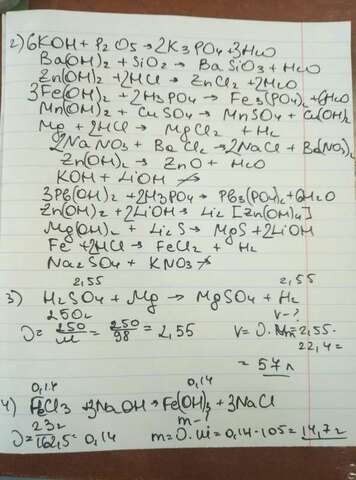 2) 6KOH + P2O5 → 2K3PO4 + 3H2O
Ba(OH)2 + SiO2 → BaSiO3 + H2O
Zn(OH)2 + 2HCl → ZnCl2 + 2H2O
3Fe(OH)2 + 2H3PO4 → Fe3(PO4)2 + 6H2O
Mn(OH)2 + CuSO4 → MnSO4 + Cu(OH)2
Mg + 2HCl → MgCl2 + H2
2NaNO3 + BaCl2 → 2NaCl + Ba(NO3)2
Zn(OH)2 → ZnO + H2O
KOH + LiOH ↛
3Pb(OH)2 + 2H3PO4 → Pb3(PO4)2 + 6H2O
Zn(OH)2 + 2LiOH → Li2[Zn(OH)4]
Mg(OH)2 + Li2S → MgS + 2LiOH
Fe + 2HCl → FeCl2 + H2
Na2SO4 + KNO3 ↛
2,55 2,55
3) H2SO4 + Mg → MgSO4 + H2
250г V-?
ν = 250/M = 250/98 = 2,55 V = ν · Vm = 2,55 ·
22,4 =
= 57л
0,14 0,14
4) FeCl3 + 3NaOH → Fe(OH)3 + 3NaCl
23г m-
ν = /162,5 = 0,14 m = ν · M = 0,14 · 105 = 14,7г